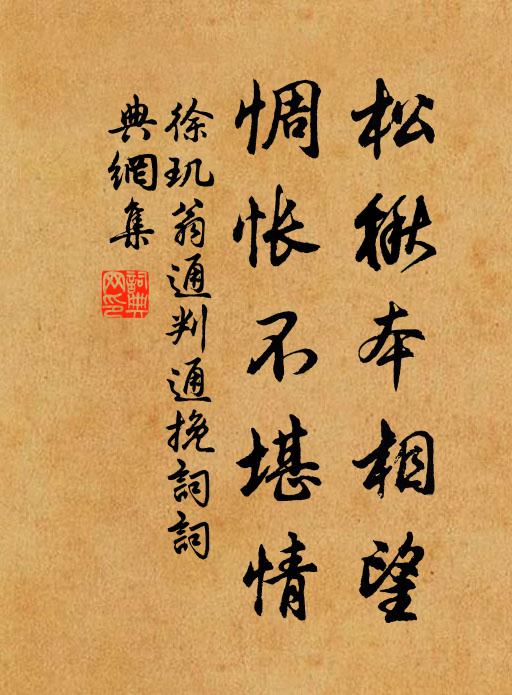 松楸本相望
惆怅不堪情
徐玑翁通判通挽詞詞
典網集
詞典网印